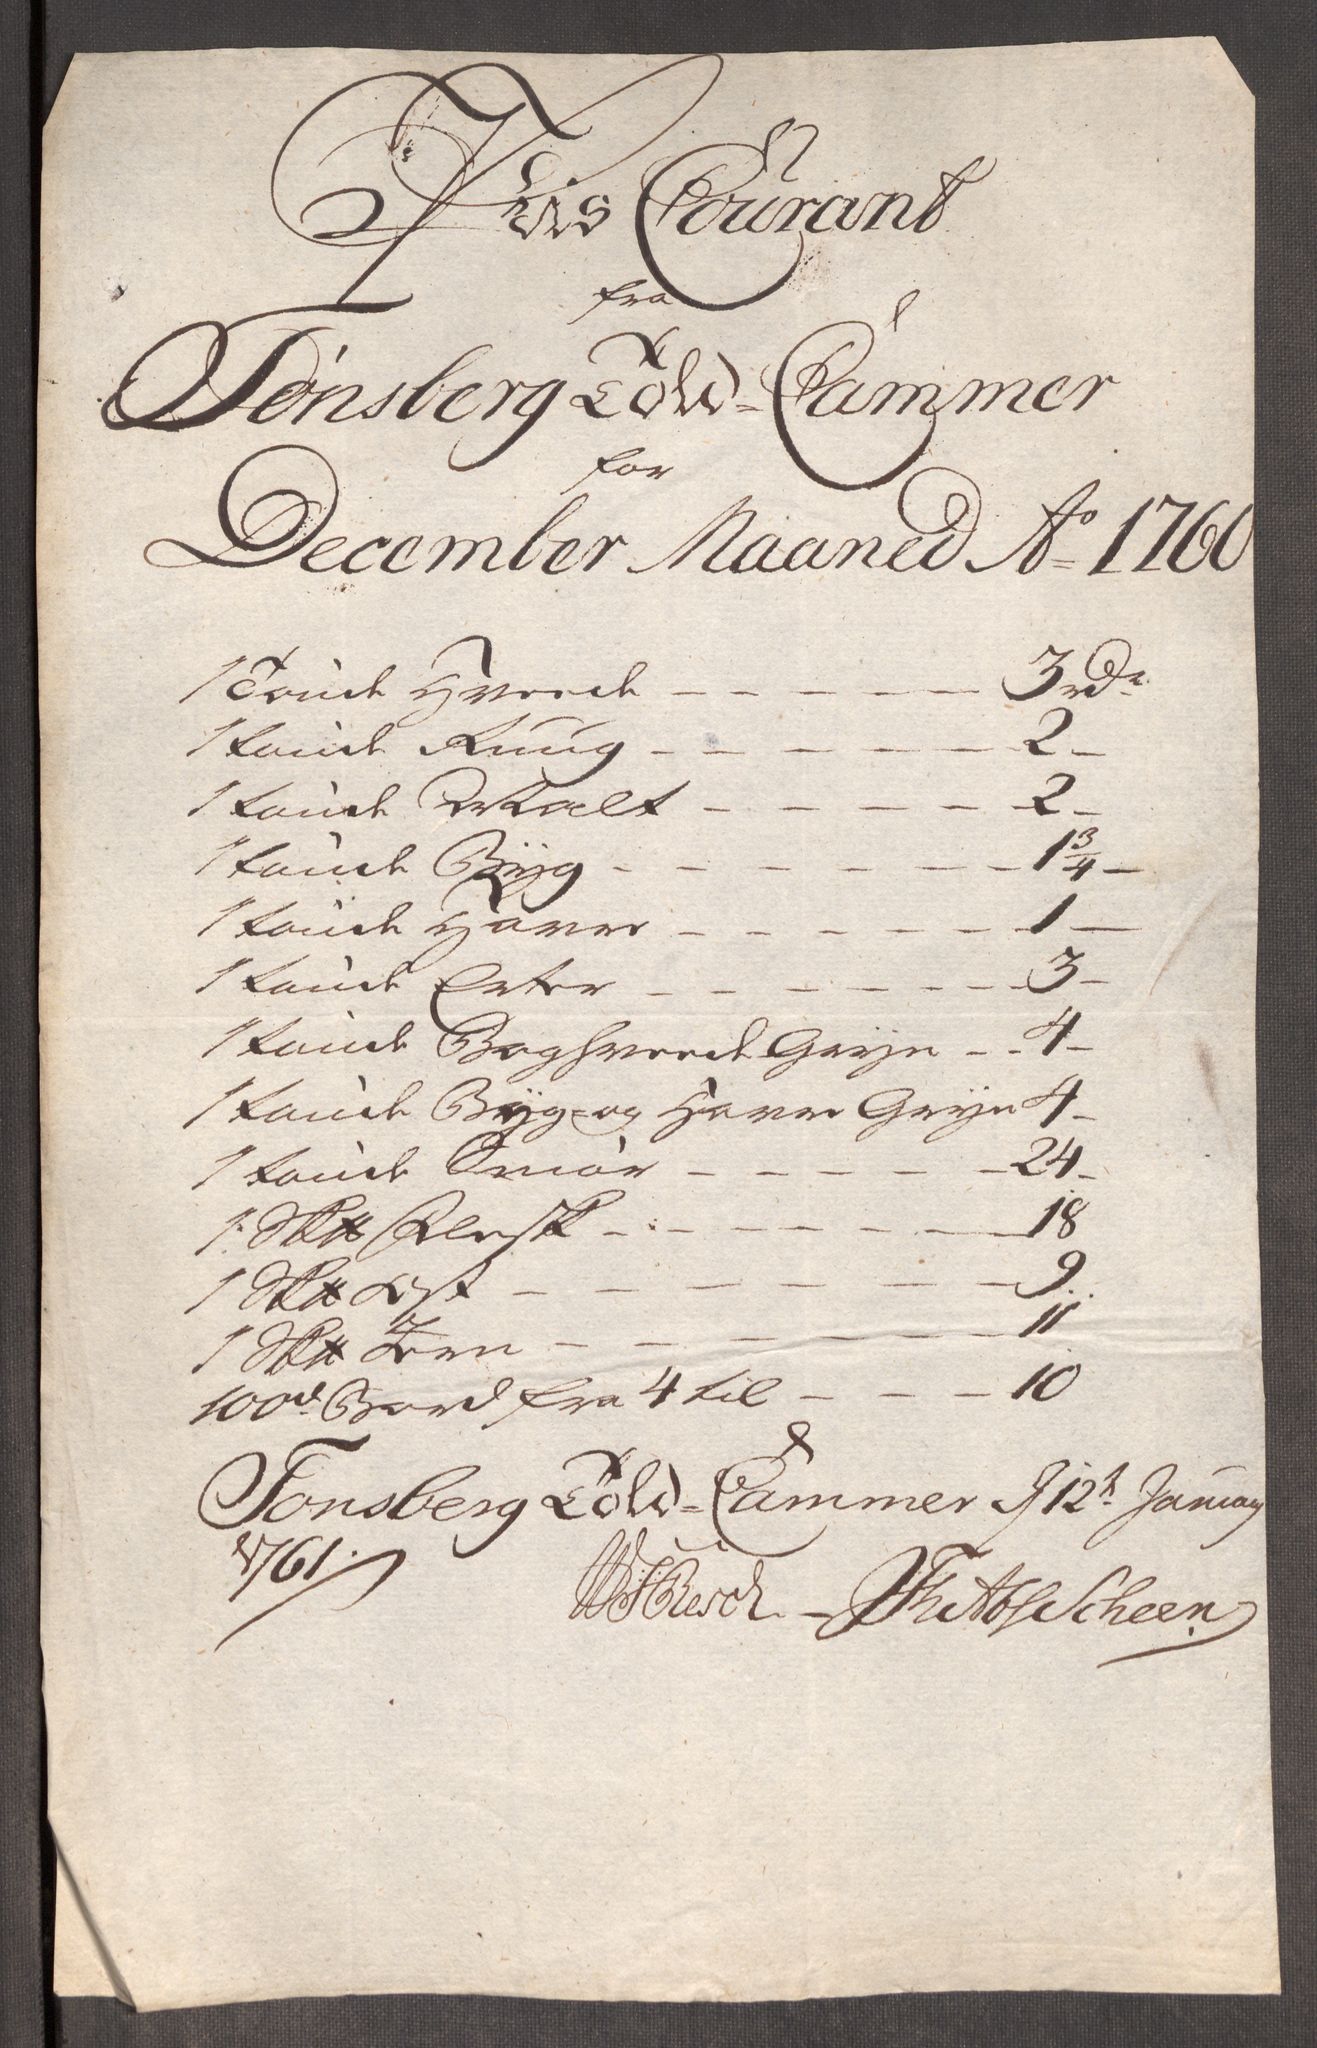 Priis Courant
fra
Tönsberg Told=Cammer
for
December Maaned Ao 1760
1 Tönde Hvede - - - - - 3 rdr
1 tönde Ruug - - - - - 2 -
1 tönde Malt - - - - - 2 -
1 tönde Byg - - - - - 1 3/4 -
1 tönde Havre - - - - - 1 -
1 tönde Erter - - - - - 3 -
1 tönde Boghvede Gryn - - 4 -
1 tönde Byg- og Havre Gryn 4 -
1 tönde Smör - - - - - 24 -
1 Sk℔ Flesk - - - - - 18
1 Sk℔ Ost - - - - - 9
1 Sk℔ Jern - - - - - 11
100de Bord fra 4 til - - - - 10
Tonsberg Told=Cammer d 12te January
1761.
Resch. Scheen